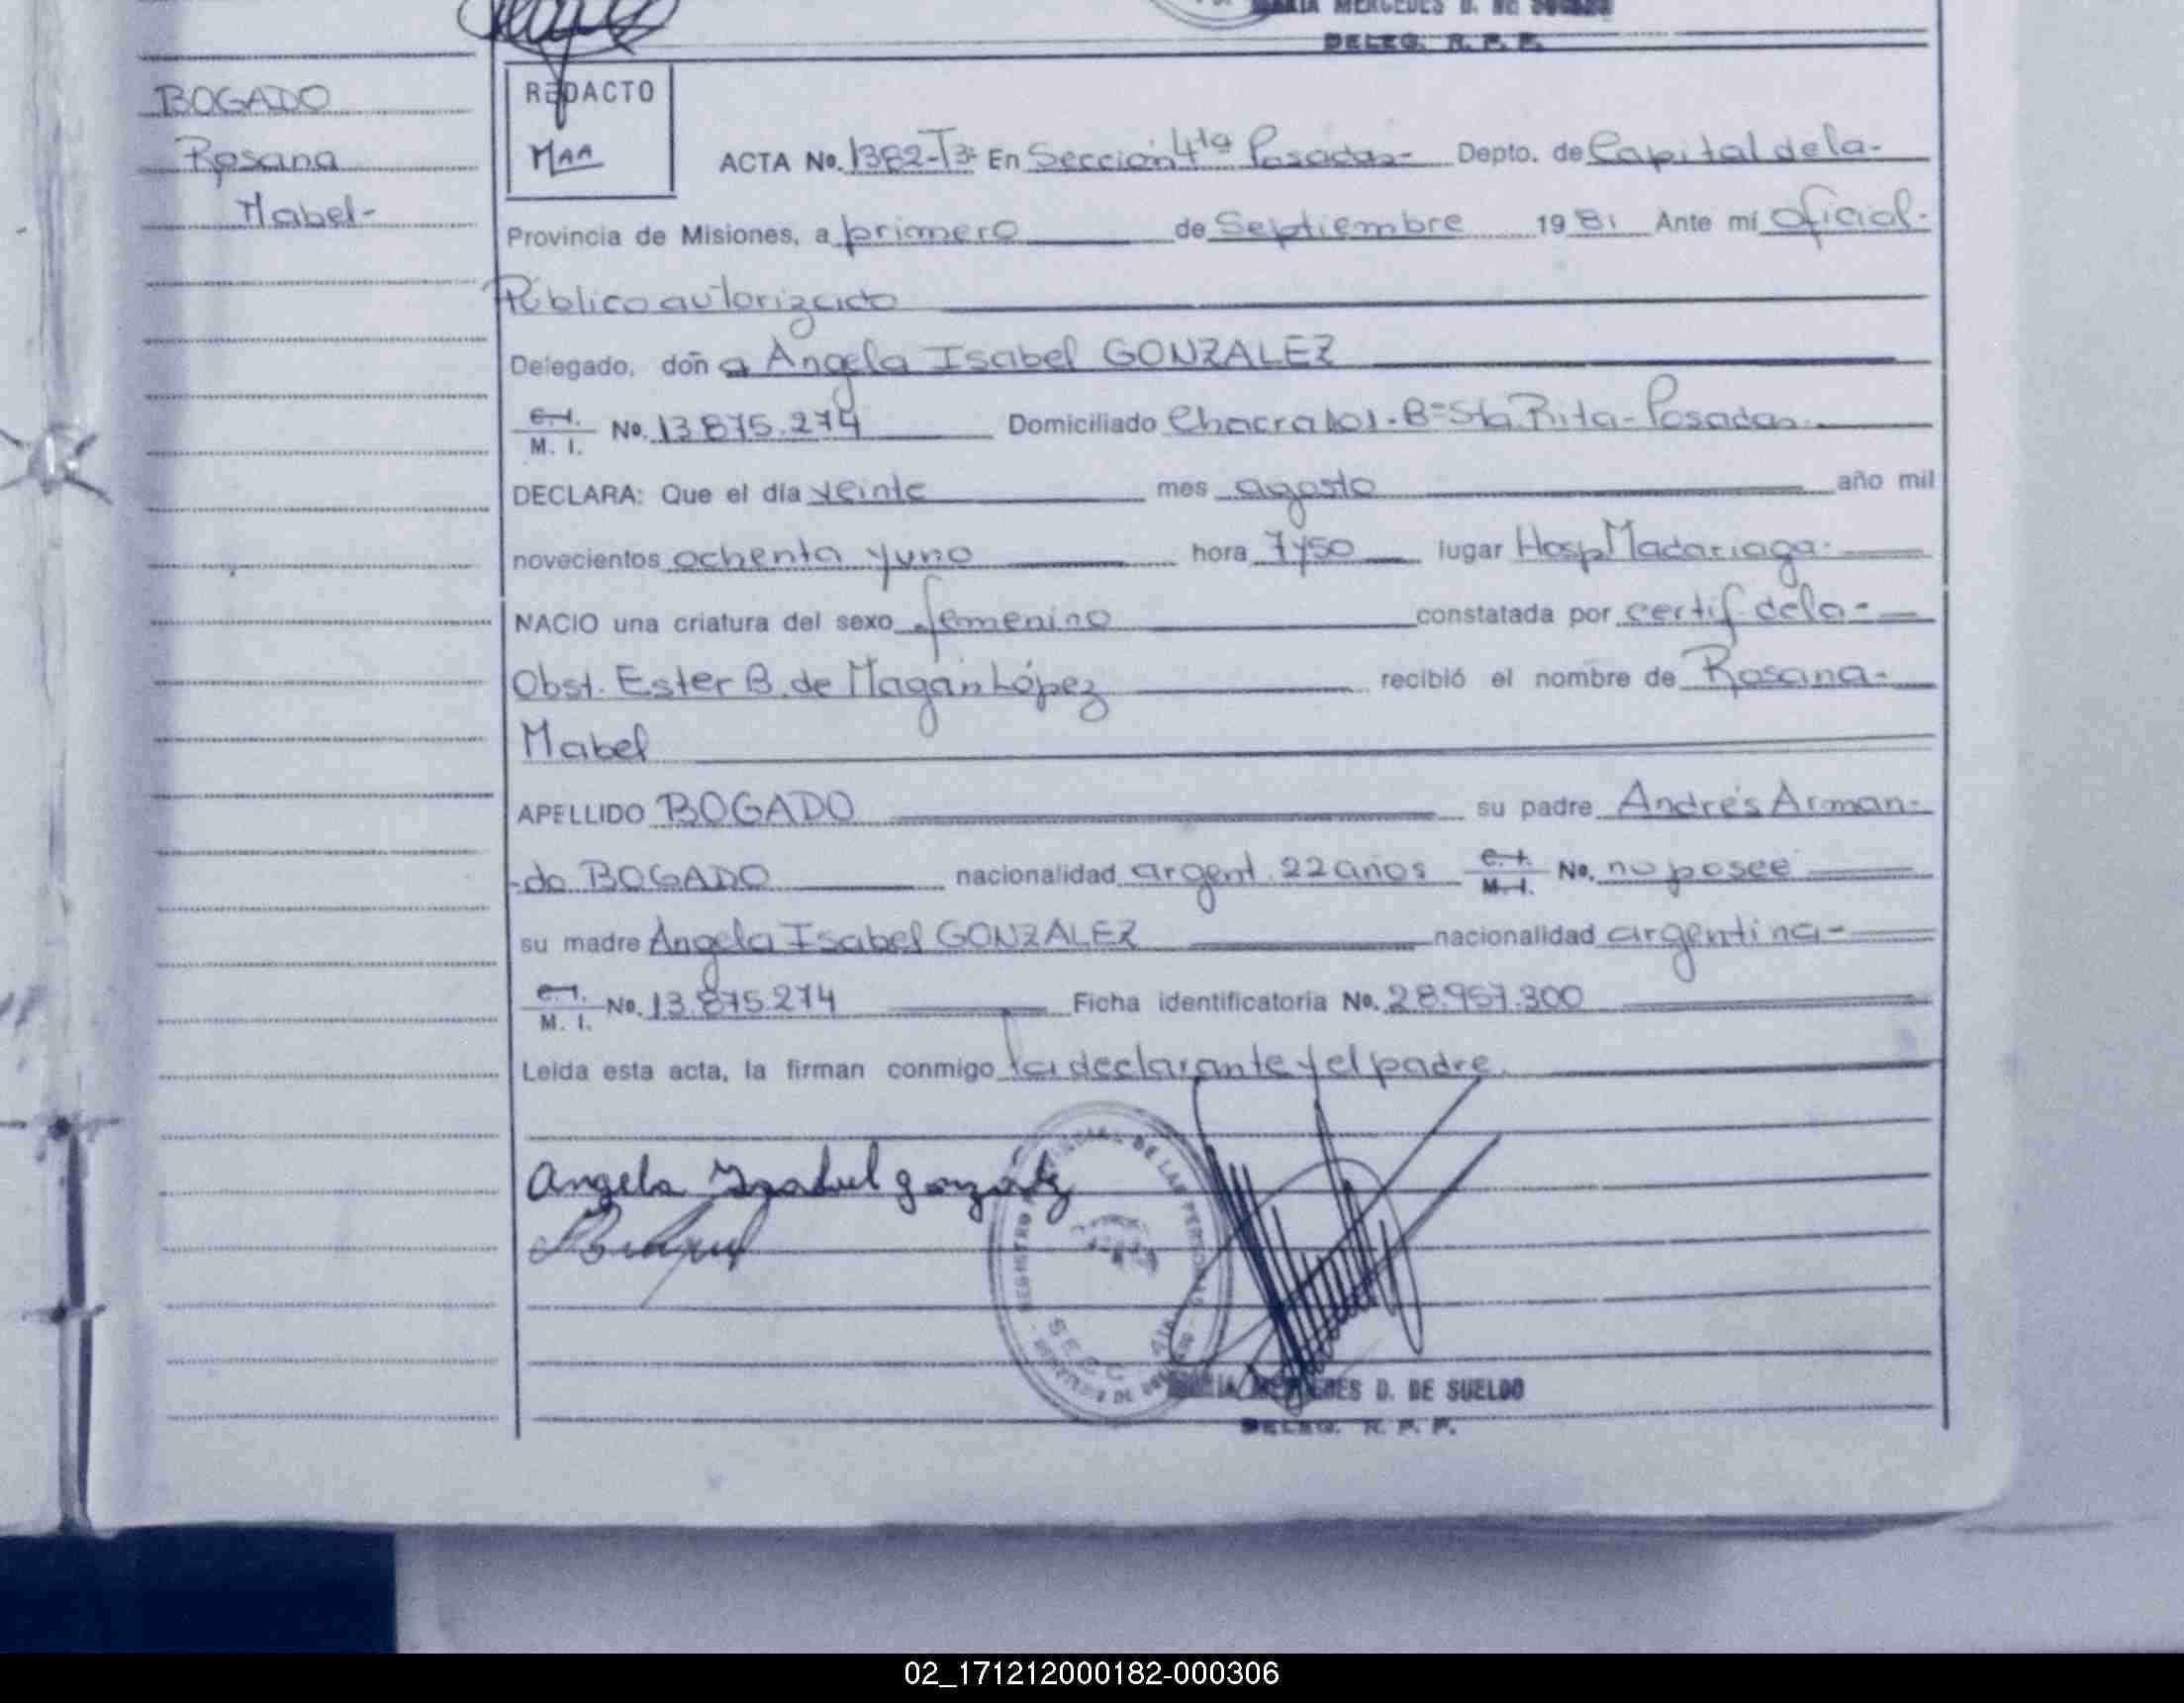 MARIA MERCEDES D. DE SUELDO
DELEG. R. P. P.
BOGADO
Rosana
Mabel-
REDACTO
ACTA No. 1382-T3: En Sección 4ta Posadas- Depto. de Capital de la-
Provincia de Misiones, a primero de Septiembre 1981 Ante mí Oficial-
Público autorizado
Delegado, doña Angela Isabel GONZALEZ
C.I. M. I. No. 13.875.274 Domiciliado Chacra 101-B=Sta. Rita-Posadas.
DECLARA: Que el día veinte mes agosto año mil
novecientos ochenta y uno hora 7y50 lugar Hosp Madariaga-
NACIO una criatura del sexo femenino constatada por certif de la-
Obst. Ester B. de Magán López recibió el nombre de Rosana-
Mabel
APELLIDO BOGADO su padre Andrés Arman-
-do BOGADO nacionalidad argent. 22 años C.I. M.I. No. no posee
su madre Angela Isabel GONZALEZ nacionalidad argentina-
C.I. M. I. No. 13.875.274 Ficha identificatoria No. 28.957.300
Leída esta acta, la firman conmigo la declarante y el padre.
Angela Ysabel gonzalez
REGISTRO PROVINCIAL DE LAS PERSONAS
SECC. 4TA
MARIA MERCEDES D. DE SUELDO
DELEG. R. P. P.
02_171212000182-000306